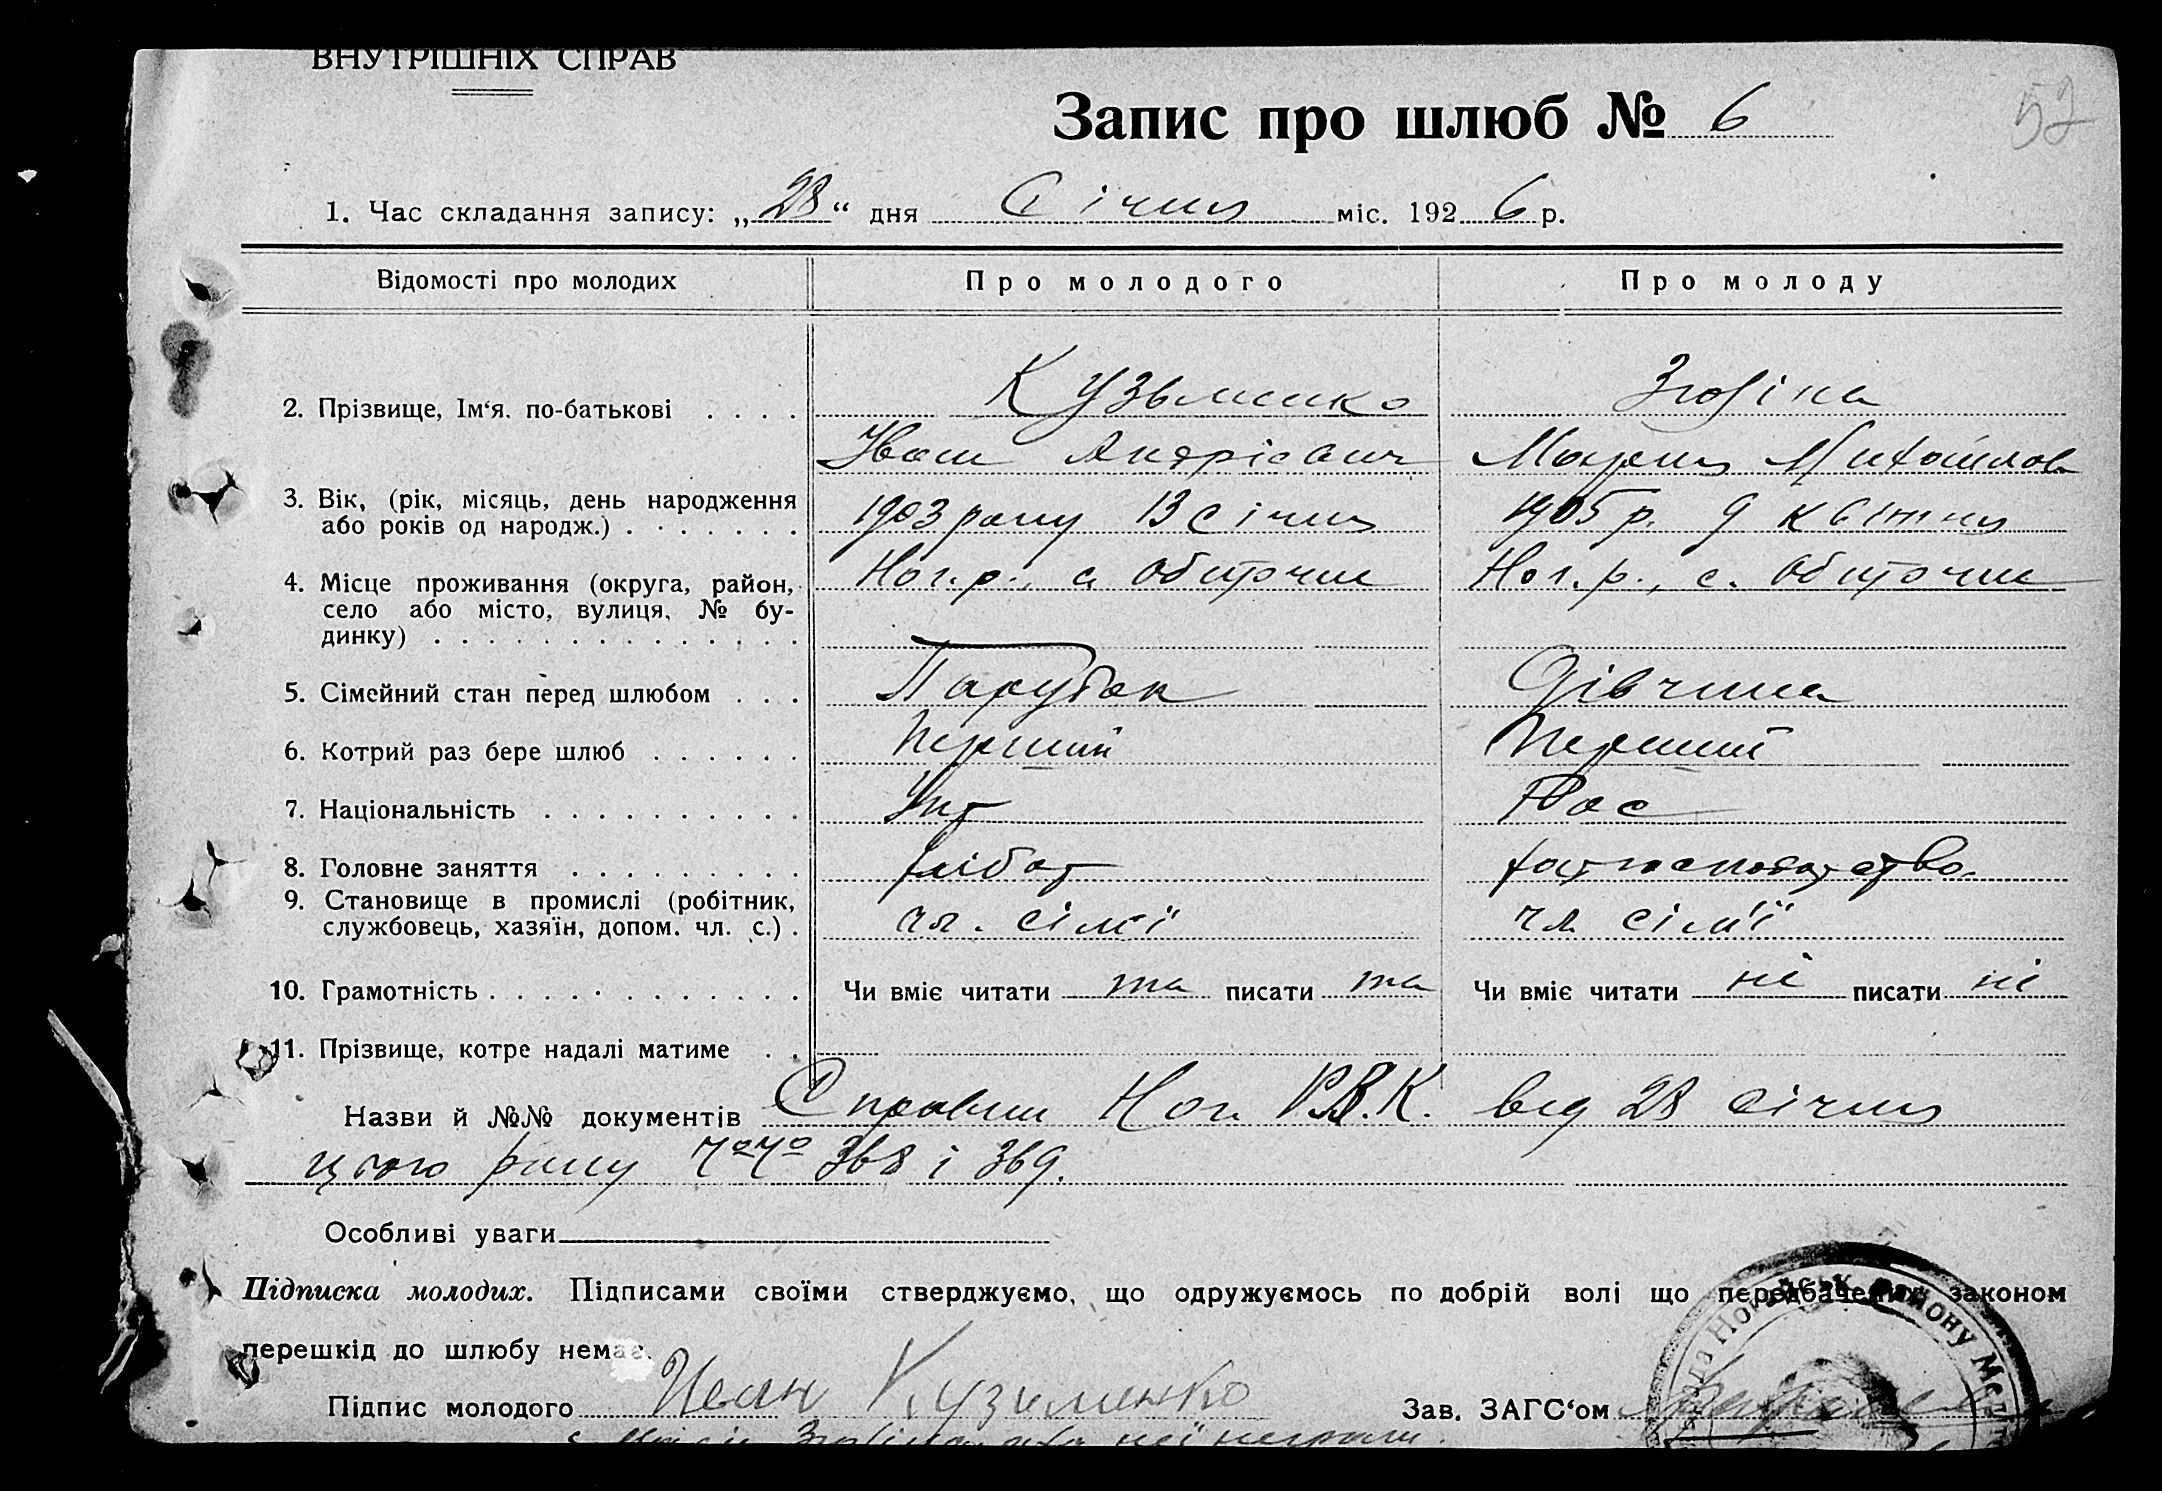 ВНУТРІШНІХ СПРАВ
Запис про шлюб № 6
52
1. Час складання запису: „28“ дня Січня міс. 1926 р.
Відомості про молодих Про молодого Про молоду
2. Прізвище, Ім‘я. по-батькові . . . . Кузьменко
Іван Андрієвич Михайлов
3. Вік, (рік, місяць, день народження
або років од народж.) . . . . . . . 1903 року 13 січня 1905 р. 9 квітня
4. Місце проживання (округа, район,
село або місто, вулиця, № бу-
динку) . . . . . . . . . . . . . . Ног. р., с. Обиточне Ног. р., с. Обиточне
5. Сімейний стан перед шлюбом . . . Парубок Дівчина
6. Котрий раз бере шлюб . . . . . . Перший Перший
7. Національність . . . . . . . . . . Укр Рос
8. Головне заняття . . . . . . . . . хлібор
9. Становище в промислі (робітник,
службовець, хазяїн, допом. чл. с.) . чл. сімї чл. сім'ї
10. Грамотність . . . . . . . . . . . . Чи вміє читати та писати та Чи вміє читати ні писати ні
11. Прізвище, котре надалі матиме . .
Назви й №№ документів Справки Ног. Р.В.К. від 28 січня
цього року 368 і 369.
Особливі уваги
Підписка молодих. Підписами своїми стверджуємо, що одружуємось по добрій волі що передбачених законом
перешкід до шлюбу немає.
Підпис молодого Иван Кузименко Зав. ЗАГС‘ом
району